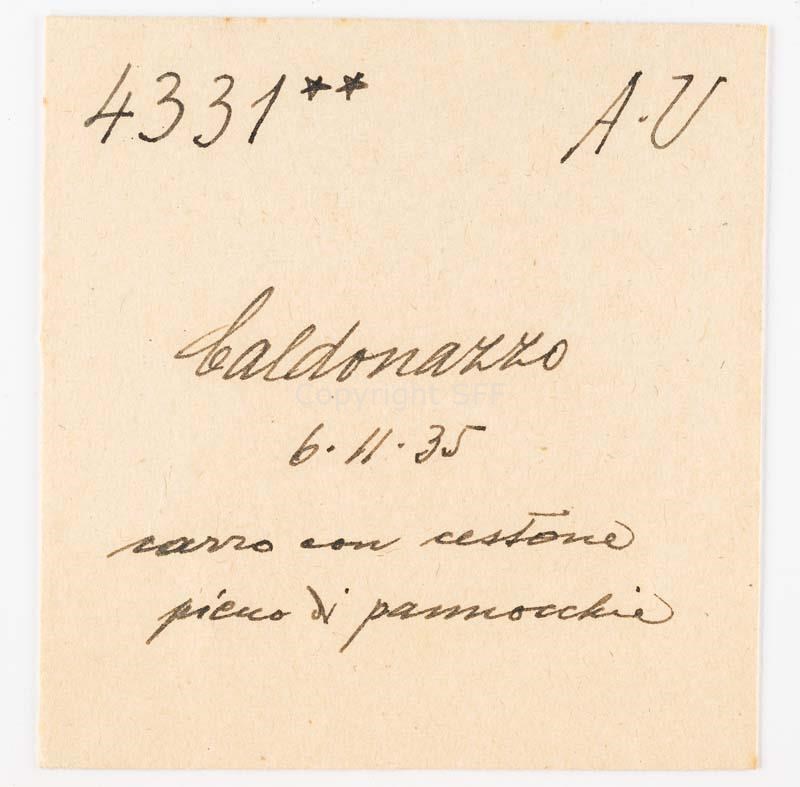 4331** A·U
Caldonazzo
Copyright SFF
6·11·35
carro con cestone
pieno di pannocchie